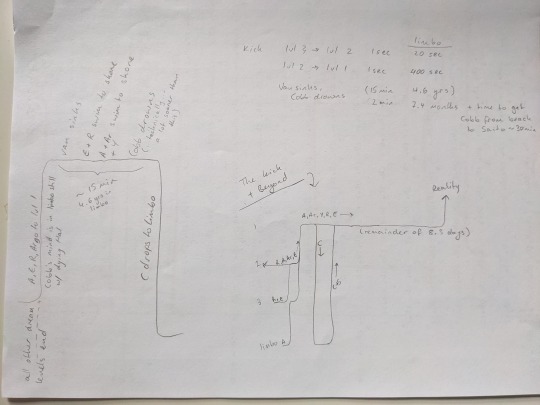 limbo
Kick lvl 3 → lvl 2 1 sec 20 sec
lvl 2 → lvl 1 1 sec 400 sec
Van sinks, (15 min 4.6 yrs)
Cobb drowns 2 min 2.4 months + time to get
Cobb from beach
to Saito ~ 20min
The kick
+ Beyond
Reality
1
(remainder of 8.3 days)
2
3
limbo
van sinks
E + R swim to shore
A + Ar swim to shore
+ Y
Cobb drowns
(technically
a lot sooner than
this)
15 min
4.6 yrs in
limbo
C drops to limbo
to lvl 1
Cobb's mind is in limbo still
w/ dying Mal
all other dream
levels end